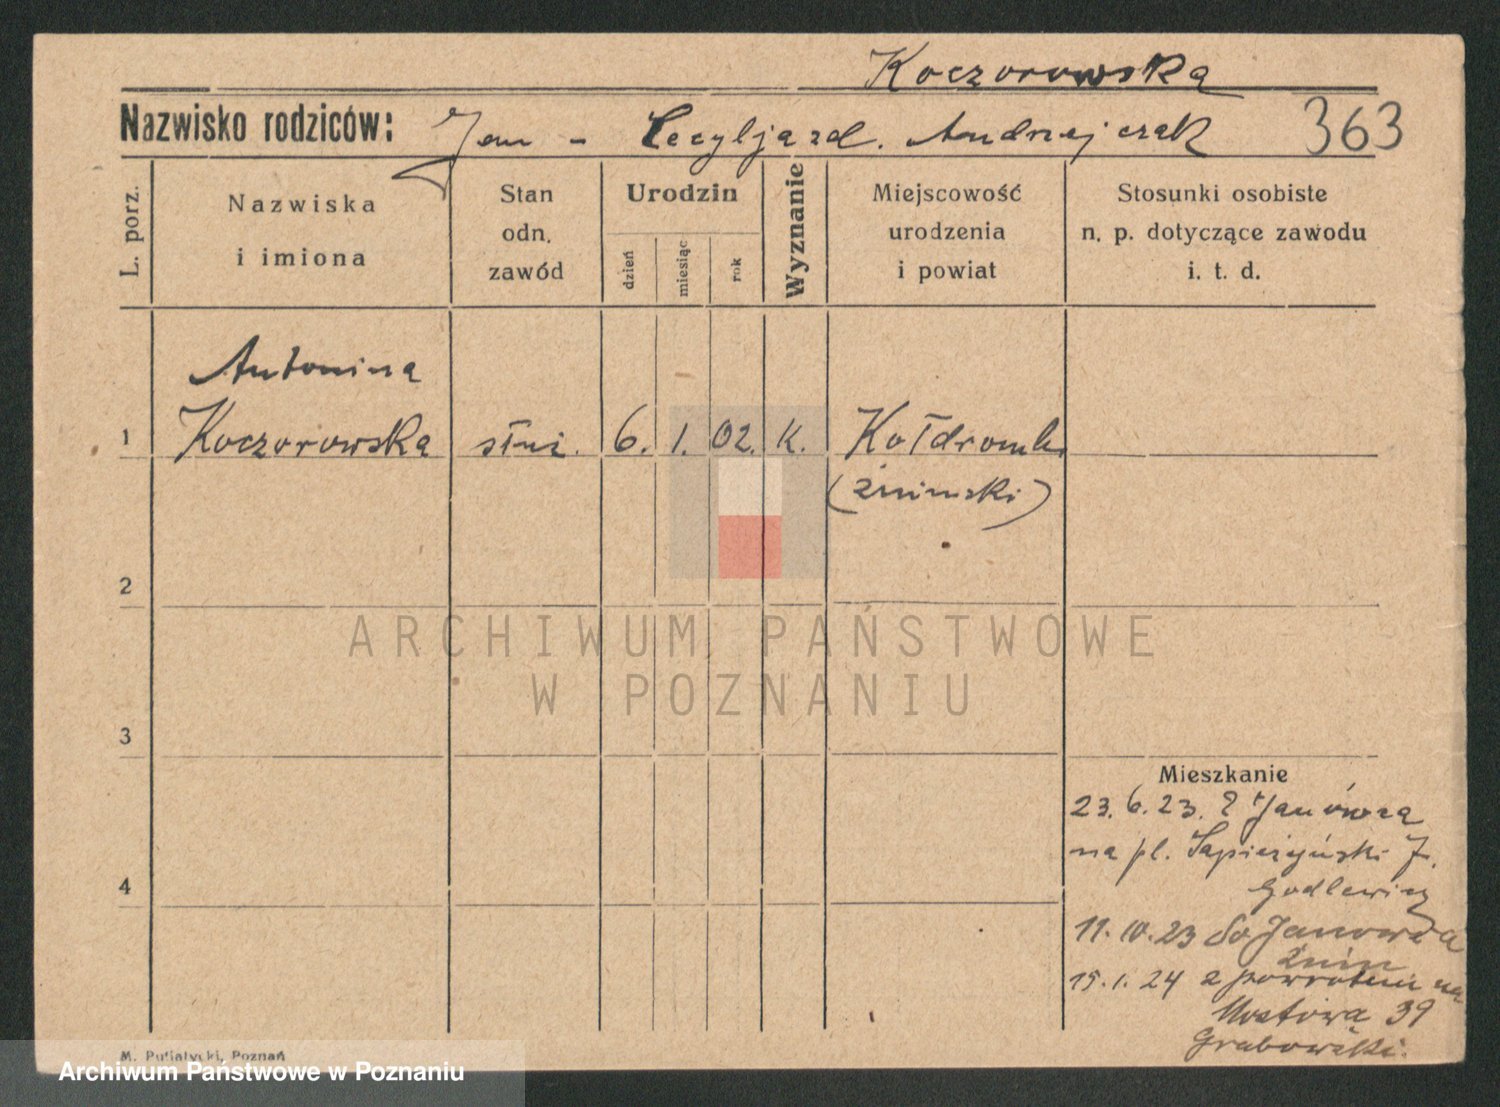 Koczorowska
Nazwisko rodziców: Jan - Cecylja zd. Andrzejczak 363
L. porz.
Nazwiska
i imiona
Stan
odn.
zawód
Urodzin
dzień
miesiąc
rok
Wyznanie
Miejscowość
urodzenia
i powiat
Stosunki osobiste
n. p. dotyczące zawodu
i. t. d.
Antonina
1 Koczorowska służ. 6. 1. 02. K. Kołdromb
(żniński)
2
ARCHIWUM PAŃSTWOWE
W POZNANIU
3
Mieszkanie
23. 6. 23. z Janówca
na pl. Sapieżyński 7.
Godlewicz
4
11. 10. 23 do Janowca
Żnin
15. 1. 24 z powrotem na
Mostowa 39
Grabowski.
M. Putiatycki, Poznań
Archiwum Państwowe w Poznaniu